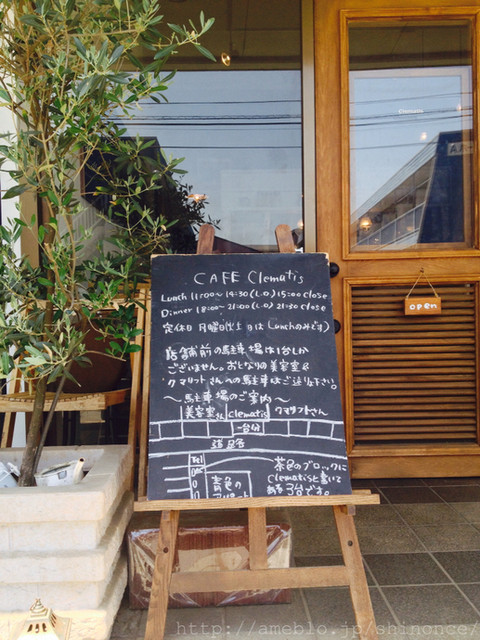 Clematis
open
CAFE Clematis
Lunch 11:00〜14:30(L.O) 15:00 close
Dinner 18:00〜21:00(L.O) 21:30 close
定休日 月曜日(火土日はLunchのみです)
店舗前の駐車場は1台しか
ございません。おとなりの美容室&
クマリットさんへの駐車はご遠慮下さい。
〜駐車場のご案内〜
美容室さん Clematis クマリットさん
一台分
茶色のブロックに
Clematisと書いて
ある 3台です。
青色の
アパート
http://ameblo.jp/shinonce/